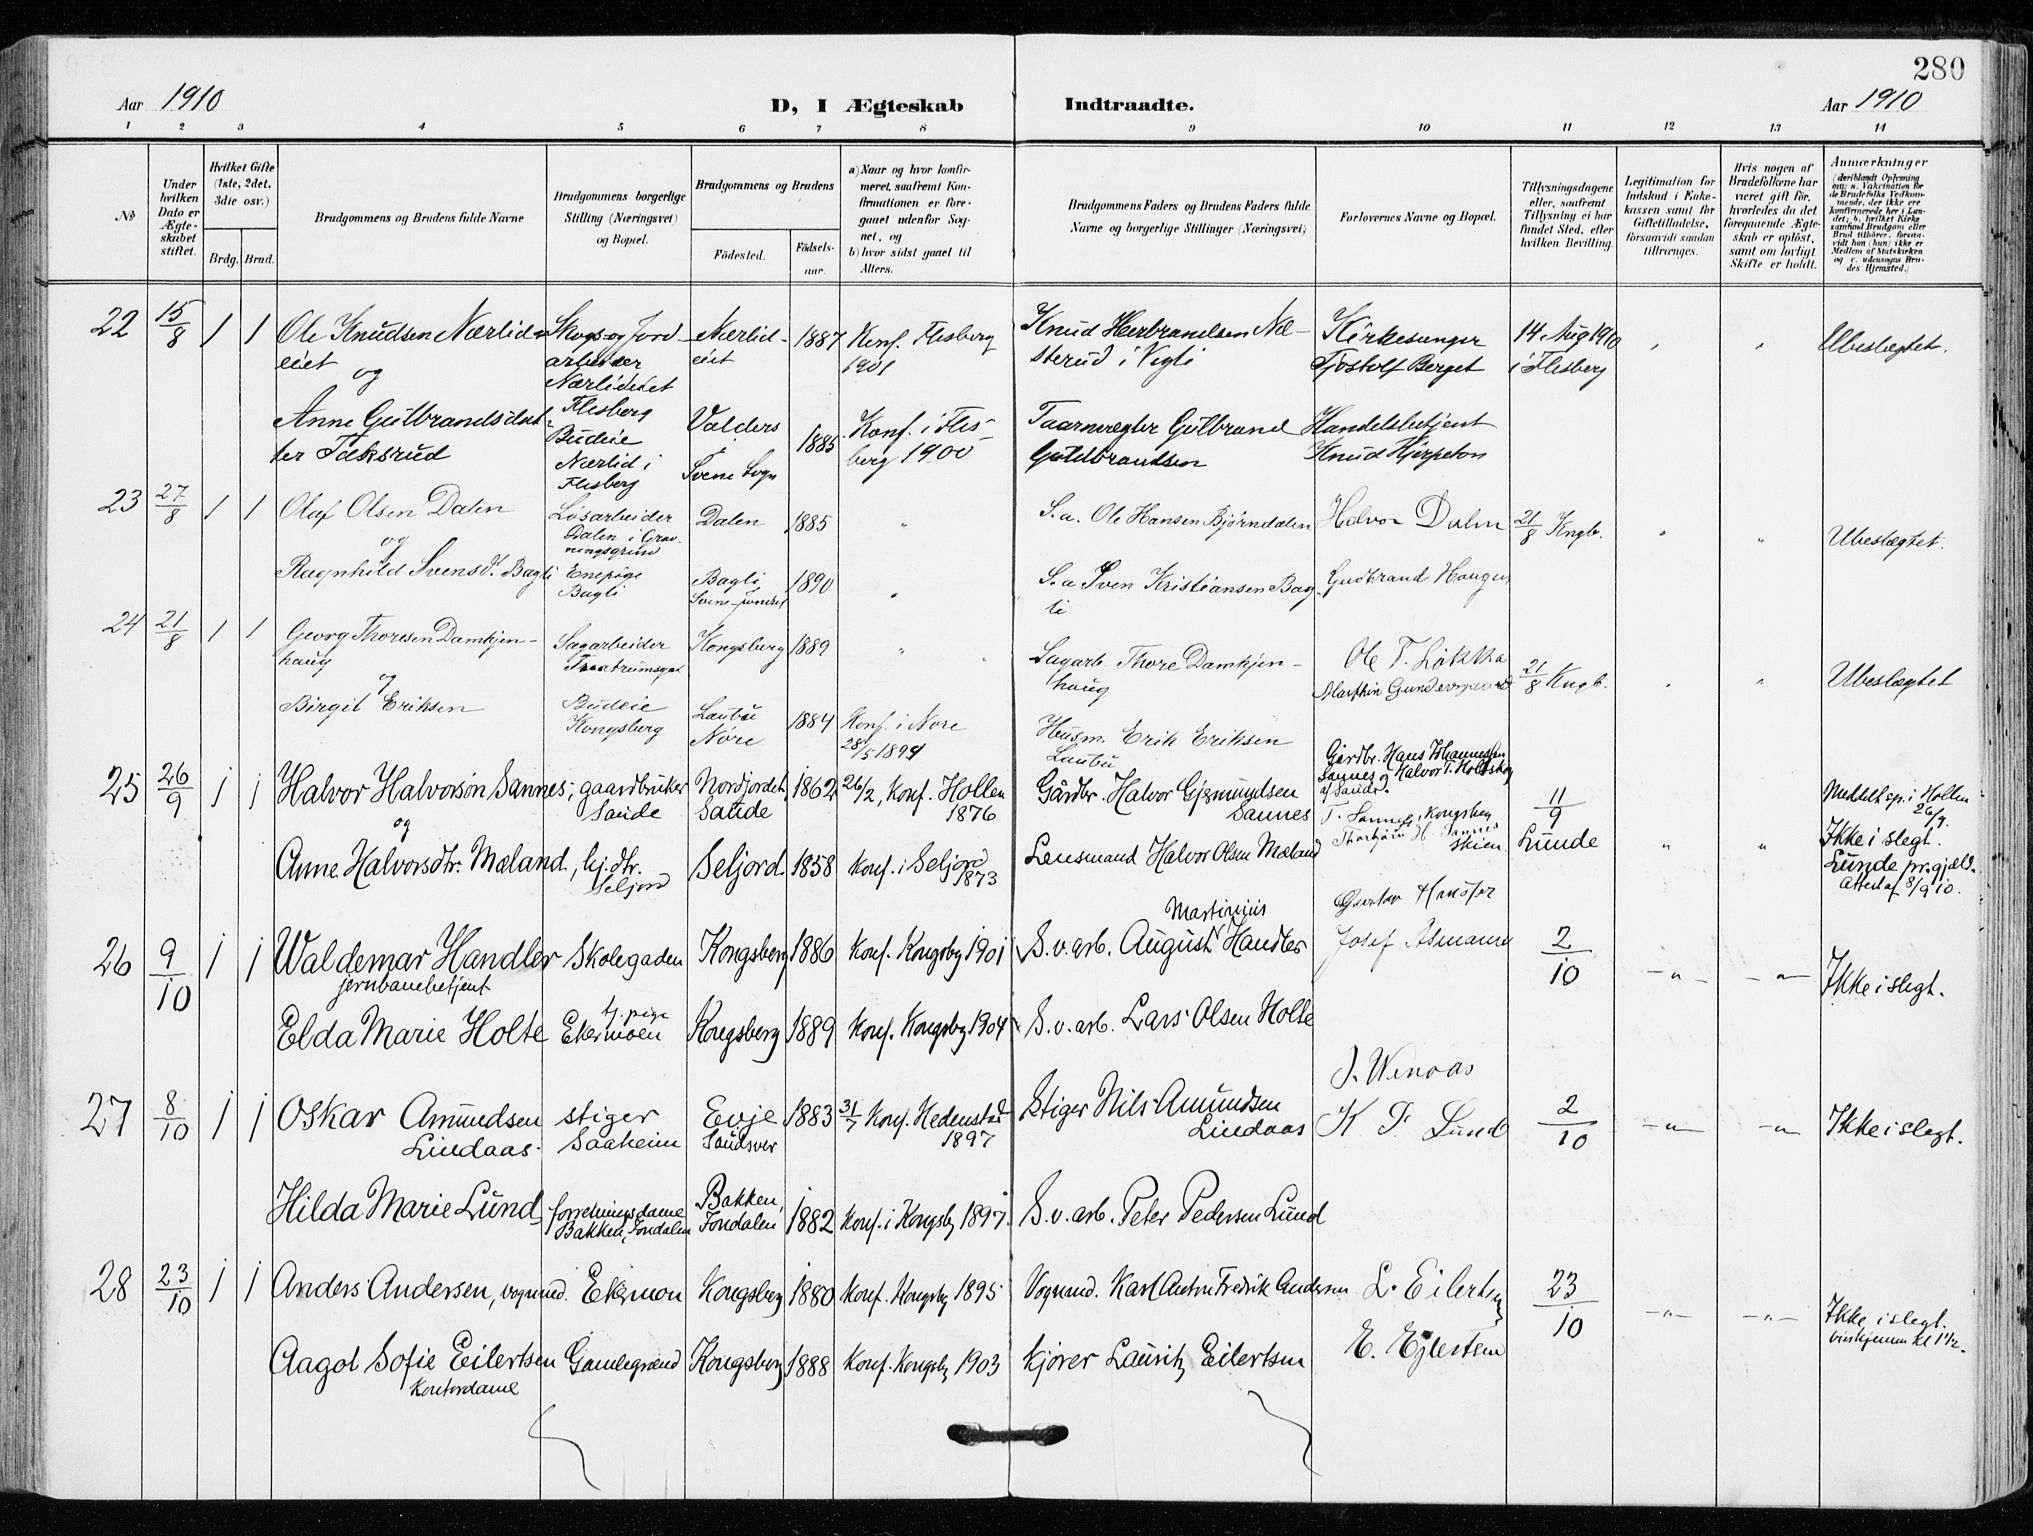 280
Aar 1910
D, I Ægteskab Indtraadte.
Aar 1910
1 2 3 4 5 6 7 8 9 10 11 12 13 14
No
Under hvilken Dato er Ægteskabet stiftet.
Hvilket Gifte (1ste, 2det, 3die osv.)
Brdg. Brud.
Brudgommens og Brudens fulde Navne
Brudgommens borgerlige Stilling (Næringsvei) og Bopæl.
Brudgommens og Brudens
Fødested.
Fødselsaar.
a) Naar og hvor konfirmeret, saafremt Konfirmationen er foregaaet udenfor Sognet, og
b) hvor sidst gaaet til Alters.
Brudgommens Faders og Brudens Faders fulde Navne og borgerlige Stillinger (Næringsvei)
Forlovernes Navne og Bopæl.
Tillysningsdagene eller, saafremt Tillysning ei har fundet Sted, efter hvilken Bevilling.
Legitimation for Indskud i Enkekassen samt for Giftetilladelse, forsaavidt saadan tiltrænges.
Hvis nogen af Brudefolkene har været gift før, hvorledes da det foregaaende Ægteskab er opløst, samt om lovligt Skifte er holdt.
Anmærkninger
(deriblandt Oplysning om: a. Vakcination for de Brudefolks Vedkommende, der ikke ere konfirmerede her i Landet; b. hvilket Kirkesamfund Brudgom eller Brud tilhører, forsaavidt han (hun) ikke er Medlem af Statskirken og c. udensogns Brudes Hjemsted.)
22 15/8 1 1 Ole Knudsen Nærlideiet
og
Skogs og Jordarbeider
Nærlideiet
Flesberg
Nærlideiet 1887 Konf. Flesberg
1901
Knud Herbrandsen Næsterud i Vegli
Kirkesanger
Tjostolf Berget
14 Aug 1910
i Flesberg
Ubeslægtet.
Anne Gulbrandsdatter Taksrud
Budeie
Nærlid i
Flesberg
Valders
Svene Sogn
1885 Konf. i Flesberg 1900
Taarnvægter Gulbrand
Guldbrandsen
Handelsbetjent
Knud
23 27/8 1 1 Olaf Olsen Dalen
og
Løsarbeider
Dalen i Gravningsgrind
Dalen 1885 "
S. a. Ole Hansen Bjørndalen
Halvor Dalen 21/8 Kngb. " "
Ubeslægtet.
Ragnhild Svensd. Bagli
Enepige
Bagli
Bagli
1890 "
S. a Sven Kristiansen Bagli
Gudbrand Haugen
24 21/8 1 1 Georg Thoresen Damkjenhaug
og
Sagarbeider
Kongsberg 1889 " "
Sagarb. Thore Damkjenhaug
Ole T. Løkka
21/8 Kngb. " "
Ubeslægtet
Birgit Eriksen
Budeie
Kongsberg
Laubu
Nore
1884 Konf. i Nore
Husm. Erik Eriksen
Laubu
25 26/9 1 1 Halvor Halvorsøn Sannes, gaardbruker
og
Sande
Nordjordet
Sande
1862 26/2, Konf. Hollen
1876
Gårdbr. Halvor Gjermundsen
Sannes
Gårdbr. Hans Johannessen
Sannes og Halvor T. Holtskog
af Sande.
T. Sannes, Kongsberg
Thorbjørn H. Sannes
Skien
11/9
Lunde
" "
Meddelt sp. i Hollen
26/9.
Ikke i slegt.
Lunde pr.gjæld.
Attest af 8/9 10.
Anne Halvorsdtr. Mæland, hj.dtr.
Seljord
Seljord 1858 Konf. i Seljord
1873
Lensmand Halvor Olsen Mæland
26 9/10 1 1 Waldemar Handler
jernbanebetjent
Skolegaden
Kongsberg 1886 Konf. Kongsbg 1901
S. v. arb. August Martinius Handler
Josef
2/10
—"— —"—
Ikke i slegt.
Elda Marie Holte
hj. pige
Ekermoen
Kongsberg 1889 Konf. Kongsbg 1904
S. v. arb. Lars Olsen Holte
27 8/10 1 1 Oskar Amundsen
Lindaas
stiger
Saaheim
Evje
Sandsver
1883 31/7 Konf. Hedenstad
1897
Stiger Nils Amundsen
Lindaas
K F. Lund
2/10
—"— —"—
Ikke i slegt.
Hilda Marie Lund
forretningsdame
Bakken, Jondalen
Bakken,
Jondalen
1882 Konf. i Kongsbg 1897.
S. v. arb. Peter Pedersen Lund
28 23/10 1 1 Anders Andersen, vognmd. Ekermoen
Kongsberg 1880 Konf. Kongsbg 1895
Vognmd. Karl Anton Fredrik Andersen
L. Eilertsen
23/10
—"— —"—
Ikke i slegt.
Aagot Sofie Eilertsen
Kontordame
Gamlegrænd
Kongsberg 1888 Konf. Kongsbg 1903
kjører Lauritz Eilertsen
E. Ejlertsen